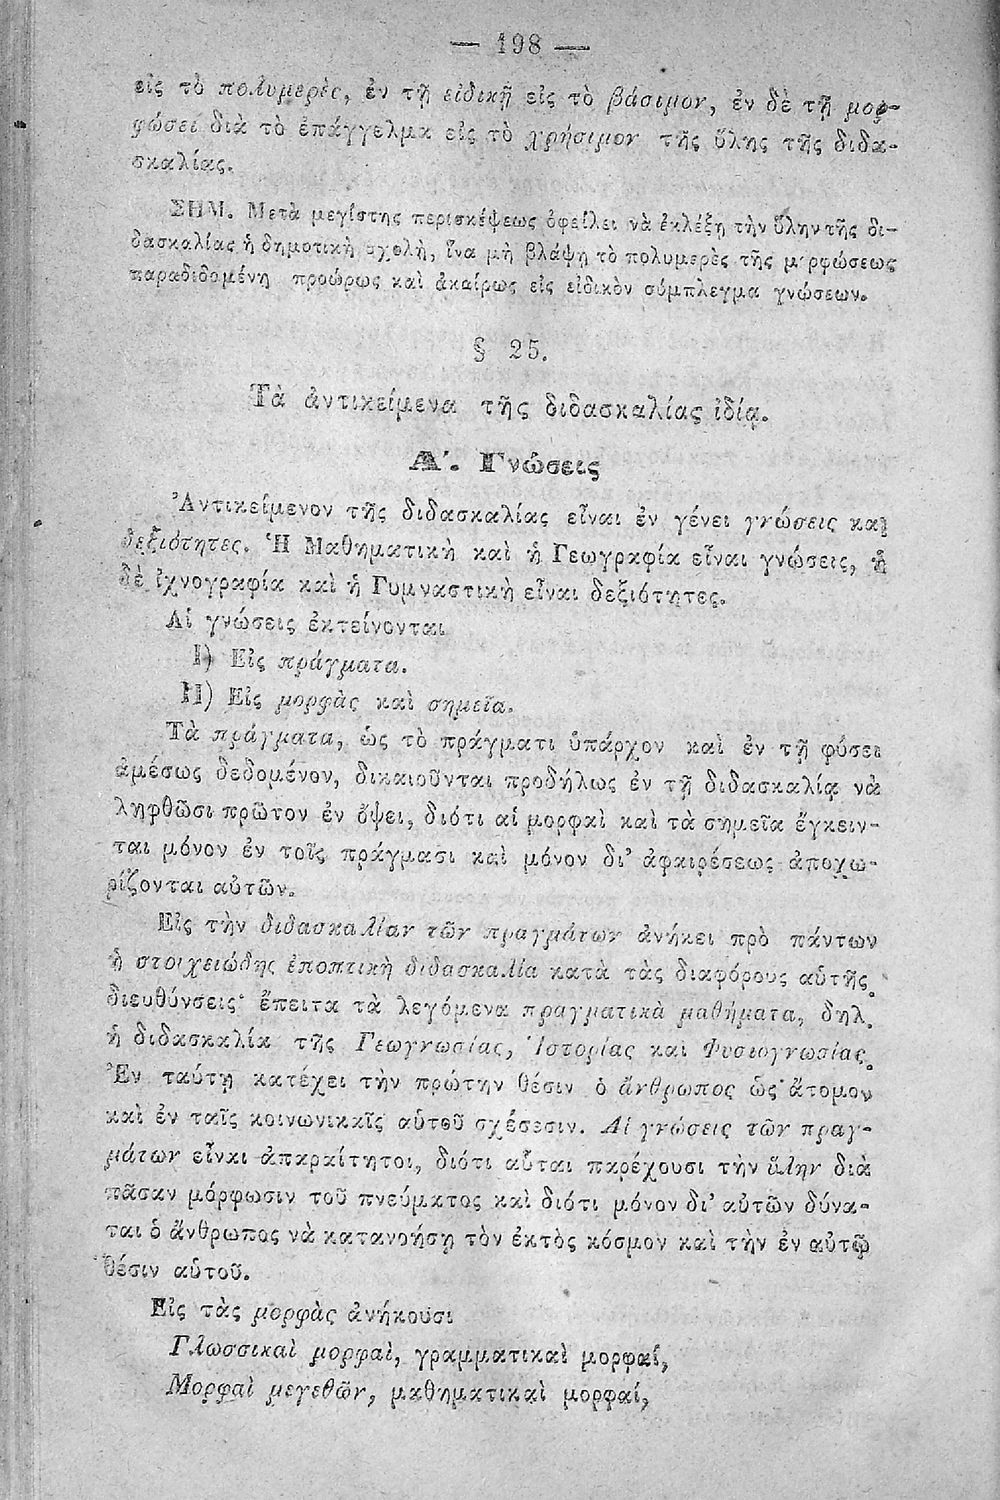 — 198 —
εἰς τὸ πολυμερὲς, ἐν τῇ εἰδικῇ εἰς τὸ βάσιμον, ἐν δὲ τῇ μορ-
φώσει διὰ τὸ ἐπάγγελμα εἰς τὸ χρήσιμον τῆς ὕλης τῆς διδα-
σκαλίας.
ΣΗΜ. Μετὰ μεγίστης περισκέψεως ὀφείλει νὰ ἐκλέξῃ τὴν ὕλην τῆς δι-
δασκαλίας ἡ δημοτικὴ σχολὴ, ἵνα μὴ βλάψῃ τὸ πολυμερὲς τῆς μορφώσεως
παραδιδομένη προώρως καὶ ἀκαίρως εἰς εἰδικὸν σύμπλεγμα γνώσεων.
§ 25.
Τὰ ἀντικείμενα τῆς διδασκαλίας ἰδίᾳ.
Α΄. Γνώσεις
Ἀντικείμενον τῆς διδασκαλίας εἶναι ἐν γένει γνώσεις καὶ
δεξιότητες. Ἡ Μαθηματικὴ καὶ ἡ Γεωγραφία εἶναι γνώσεις, ἡ
δὲ ἰχνογραφία καὶ ἡ Γυμναστικὴ εἶναι δεξιότητες.
Αἱ γνώσεις ἐκτείνονται
I) Εἰς πράγματα.
II) Εἰς μορφὰς καὶ σημεῖα.
Τὰ πράγματα, ὡς τὸ πράγματι ὑπάρχον καὶ ἐν τῇ φύσει
ἀμέσως δεδομένον, δικαιοῦνται προδήλως ἐν τῇ διδασκαλίᾳ νὰ
ληφθῶσι πρῶτον ἐν ὄψει, διότι αἱ μορφαὶ καὶ τὰ σημεῖα ἔγκειν-
ται μόνον ἐν τοῖς πράγμασι καὶ μόνον δι' ἀφαιρέσεως ἀποχω-
ρίζονται αὐτῶν.
Εἰς τὴν διδασκαλίαν τῶν πραγμάτων ἀνήκει πρὸ πάντων
ἡ στοιχειώδης ἐποπτικὴ διδασκαλία κατὰ τὰς διαφόρους αὑτῆς
διευθύνσεις· ἔπειτα τὰ λεγόμενα πραγματικὰ μαθήματα, δηλ.
ἡ διδασκαλία τῆς Γεωγνωσίας, Ἱστορίας καὶ Φυσιογνωσίας.
Ἐν ταύτῃ κατέχει τὴν πρώτην θέσιν ὁ ἄνθρωπος ὡς ἄτομον
καὶ ἐν ταῖς κοινωνικαῖς αὑτοῦ σχέσεσιν. Αἱ γνώσεις τῶν πραγ-
μάτων εἶναι ἀπαραίτητοι, διότι αὗται παρέχουσι τὴν ὕλην διὰ
πᾶσαν μόρφωσιν τοῦ πνεύματος καὶ διότι μόνον δι' αὐτῶν δύνα-
ται ὁ ἄνθρωπος νὰ κατανοήσῃ τὸν ἐκτὸς κόσμον καὶ τὴν ἐν αὐτῷ
θέσιν αὑτοῦ.
Εἰς τὰς μορφὰς ἀνήκουσι
Γλωσσικαὶ μορφαὶ, γραμματικαὶ μορφαί,
Μορφαὶ μεγεθῶν, μαθηματικαὶ μορφαί,